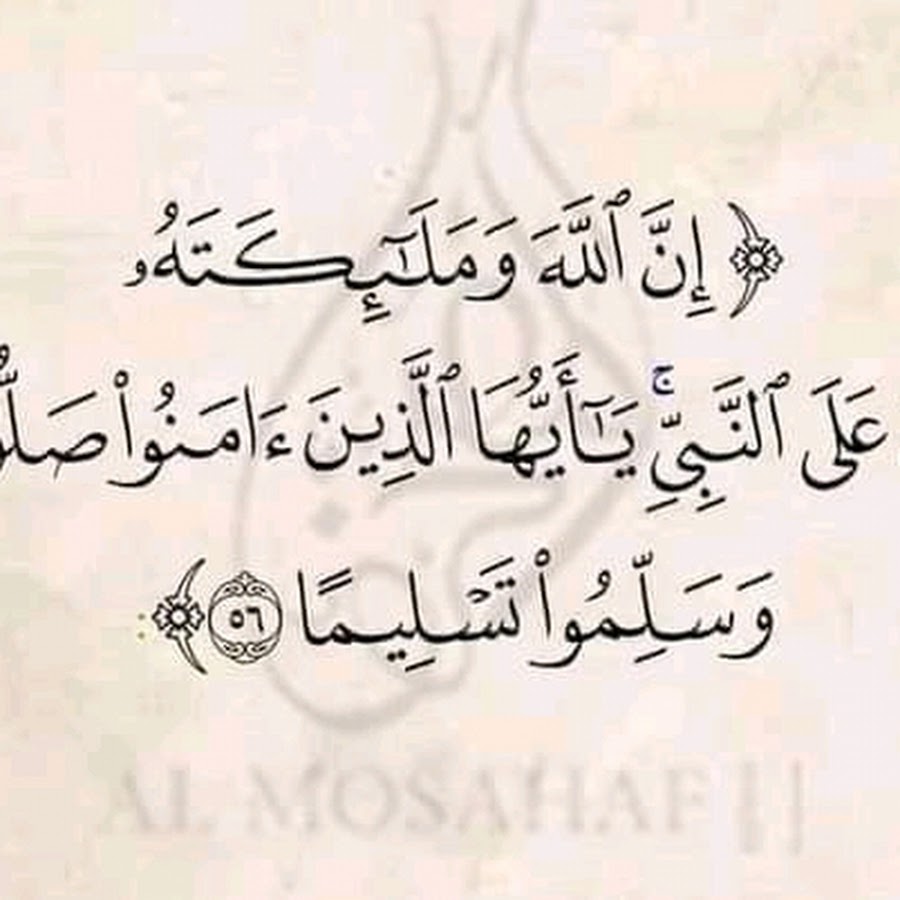 ﴿ إِنَّ ٱللَّهَ وَمَلَـٰٓئِكَتَهُۥ
عَلَى ٱلنَّبِىِّ ۚ يَـٰٓأَيُّهَا ٱلَّذِينَ ءَامَنُوا۟
وَسَلِّمُوا۟ تَسْلِيمًا ٥٦ ﴾
AL MOSAHAF